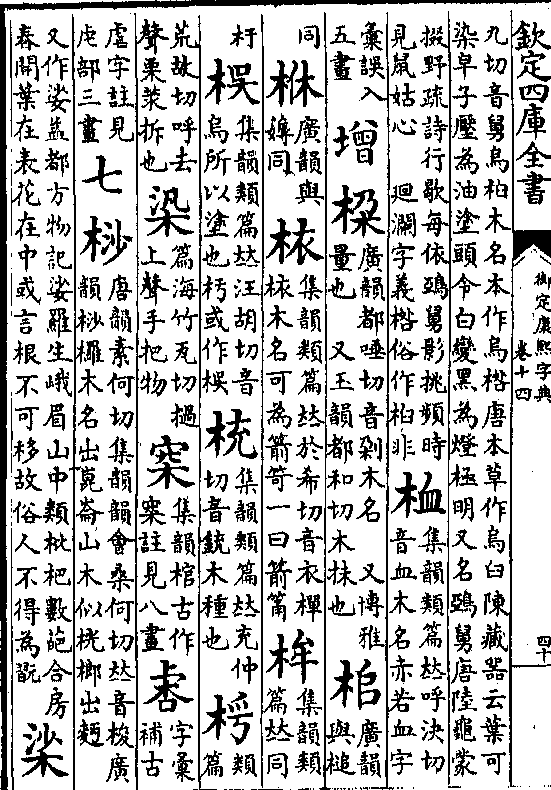 欽定四庫全書
御定康熙字典
卷十四
四十
九切音舅烏桕木名本作烏桕唐本草作烏臼陳藏器云葉可
染皁子壓為油塗頭令白變黑為燈極明又名鵶舅唐陸龜蒙
掇野疏詩行歇每依鵶舅影挑頻時
見鼠姑心 迴瀾字義桕俗作柏非
桖
集韻類篇𠀤呼決切
音血木名赤若血字
彙誤入
五畫
增
廣韻都唾切音剁木名 又博雅
量也 又玉韻都和切木抹也
桘
廣韻
與槌
同
廣韻與
同
集韻類篇𠀤於希切音衣樿
木名可為箭笴一曰箭筩
桙
集韻類
篇𠀤同
杅
集韻類篇𠀤汪胡切音
烏所以塗也杇或作
集韻類篇𠀤充仲
切音銃木種也
類
篇
荒故切呼去
聲栗拆也
篇海竹瓦切撾
上聲手把物
集韻棺古作
註見八畫
字彙
補古
虐字註見
虍部三畫
七
桫
唐韻素何切集韻韻會桑何切𠀤音梭廣
韻桫欏木名出崑崙山木似桄榔出麪
又作娑益都方物記娑羅生峨眉山中類枇杷數葩合房
春開葉在表花在中或言根不可移故俗人不得為翫
桬